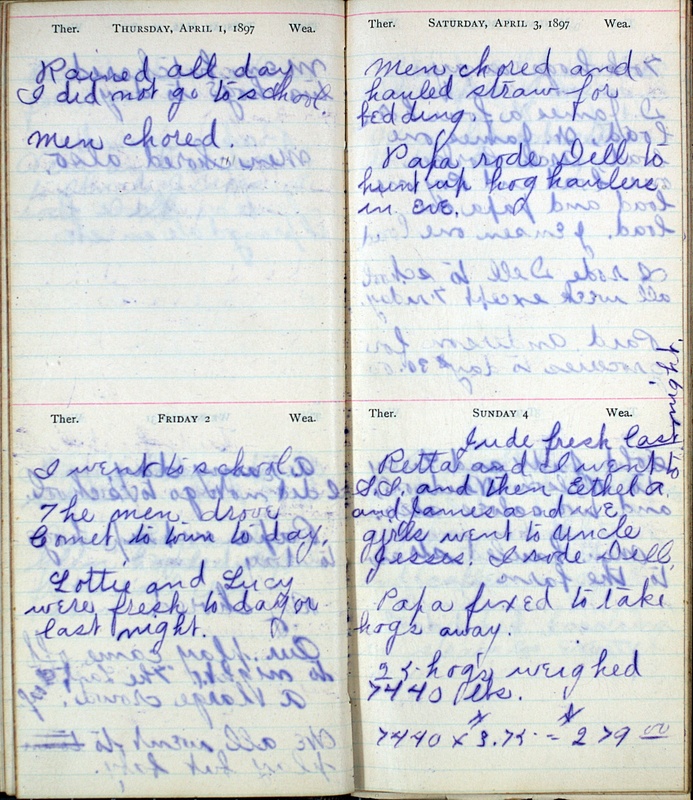 Ther. THURSDAY, APRIL 1, 1897 Wea.
Rained all day
I did not go to school
Men chored.
Ther. FRIDAY 2 Wea.
I went to school.
The men drove
Comet to town to day.
Lottie and Lucy
were fresh to day or
last night.
Ther. SATURDAY, APRIL 3, 1897 Wea.
Men chored and
hauled straw for
bedding.
Papa rode Dell to
hunt up hog haulers
in eve.
Ther. SUNDAY 4 Wea.
Jude fresh last
night.
Retta and I went to
S.S. and then Ethel a.
and James and E.
girls went to Uncle
Jesses. I rode Dell.
Papa fixed to take
hogs away.
25 hogs weighed
7440 lbs.
7440 x 3.75 = $279 00